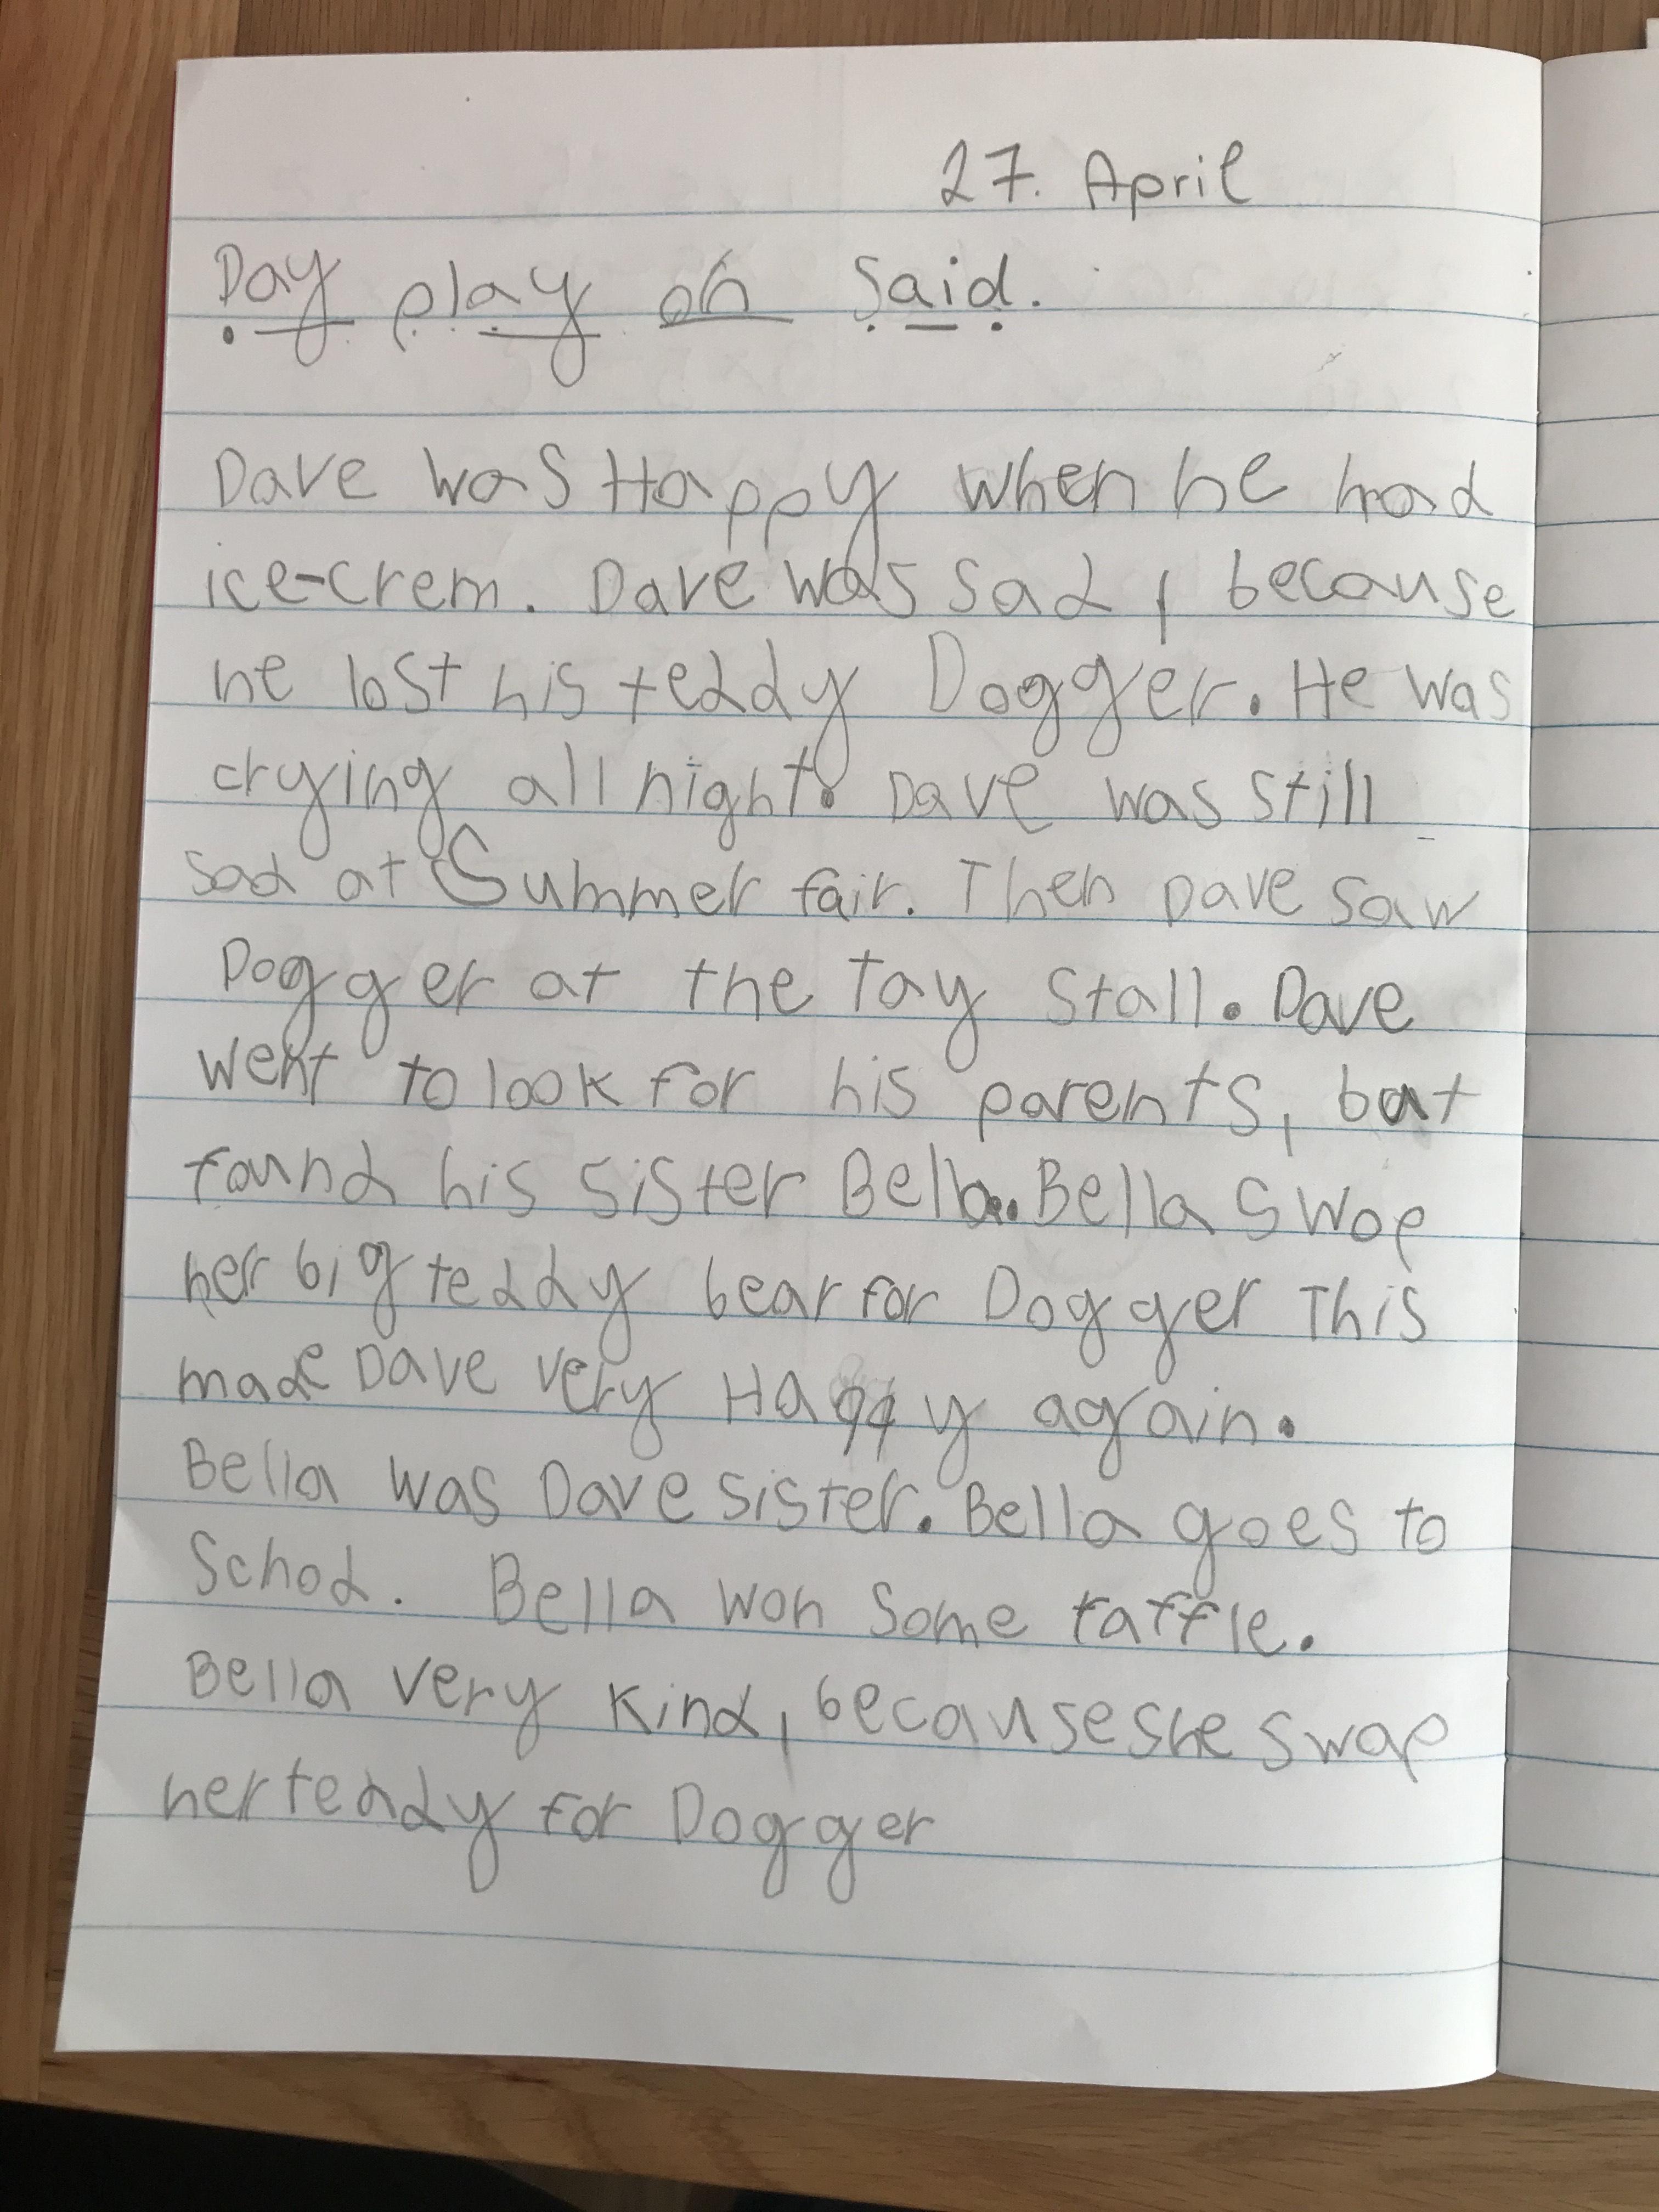 27. April
Day play oh said.
Dave was Happy when he had
ice-crem. Dave was sad, because
he lost his teddy Dogger. He was
crying all night. Dave was still
sad at Summer fair. Then Dave saw
Dogger at the toy Stall. Dave
went to look for his parents, but
found his sister Bella. Bella swop
her big teddy bear for Dogger This
made Dave very Happy again.
Bella was Dave sister. Bella goes to
School. Bella won some raffle.
Bella very kind, because she swap
her teddy for Dogger